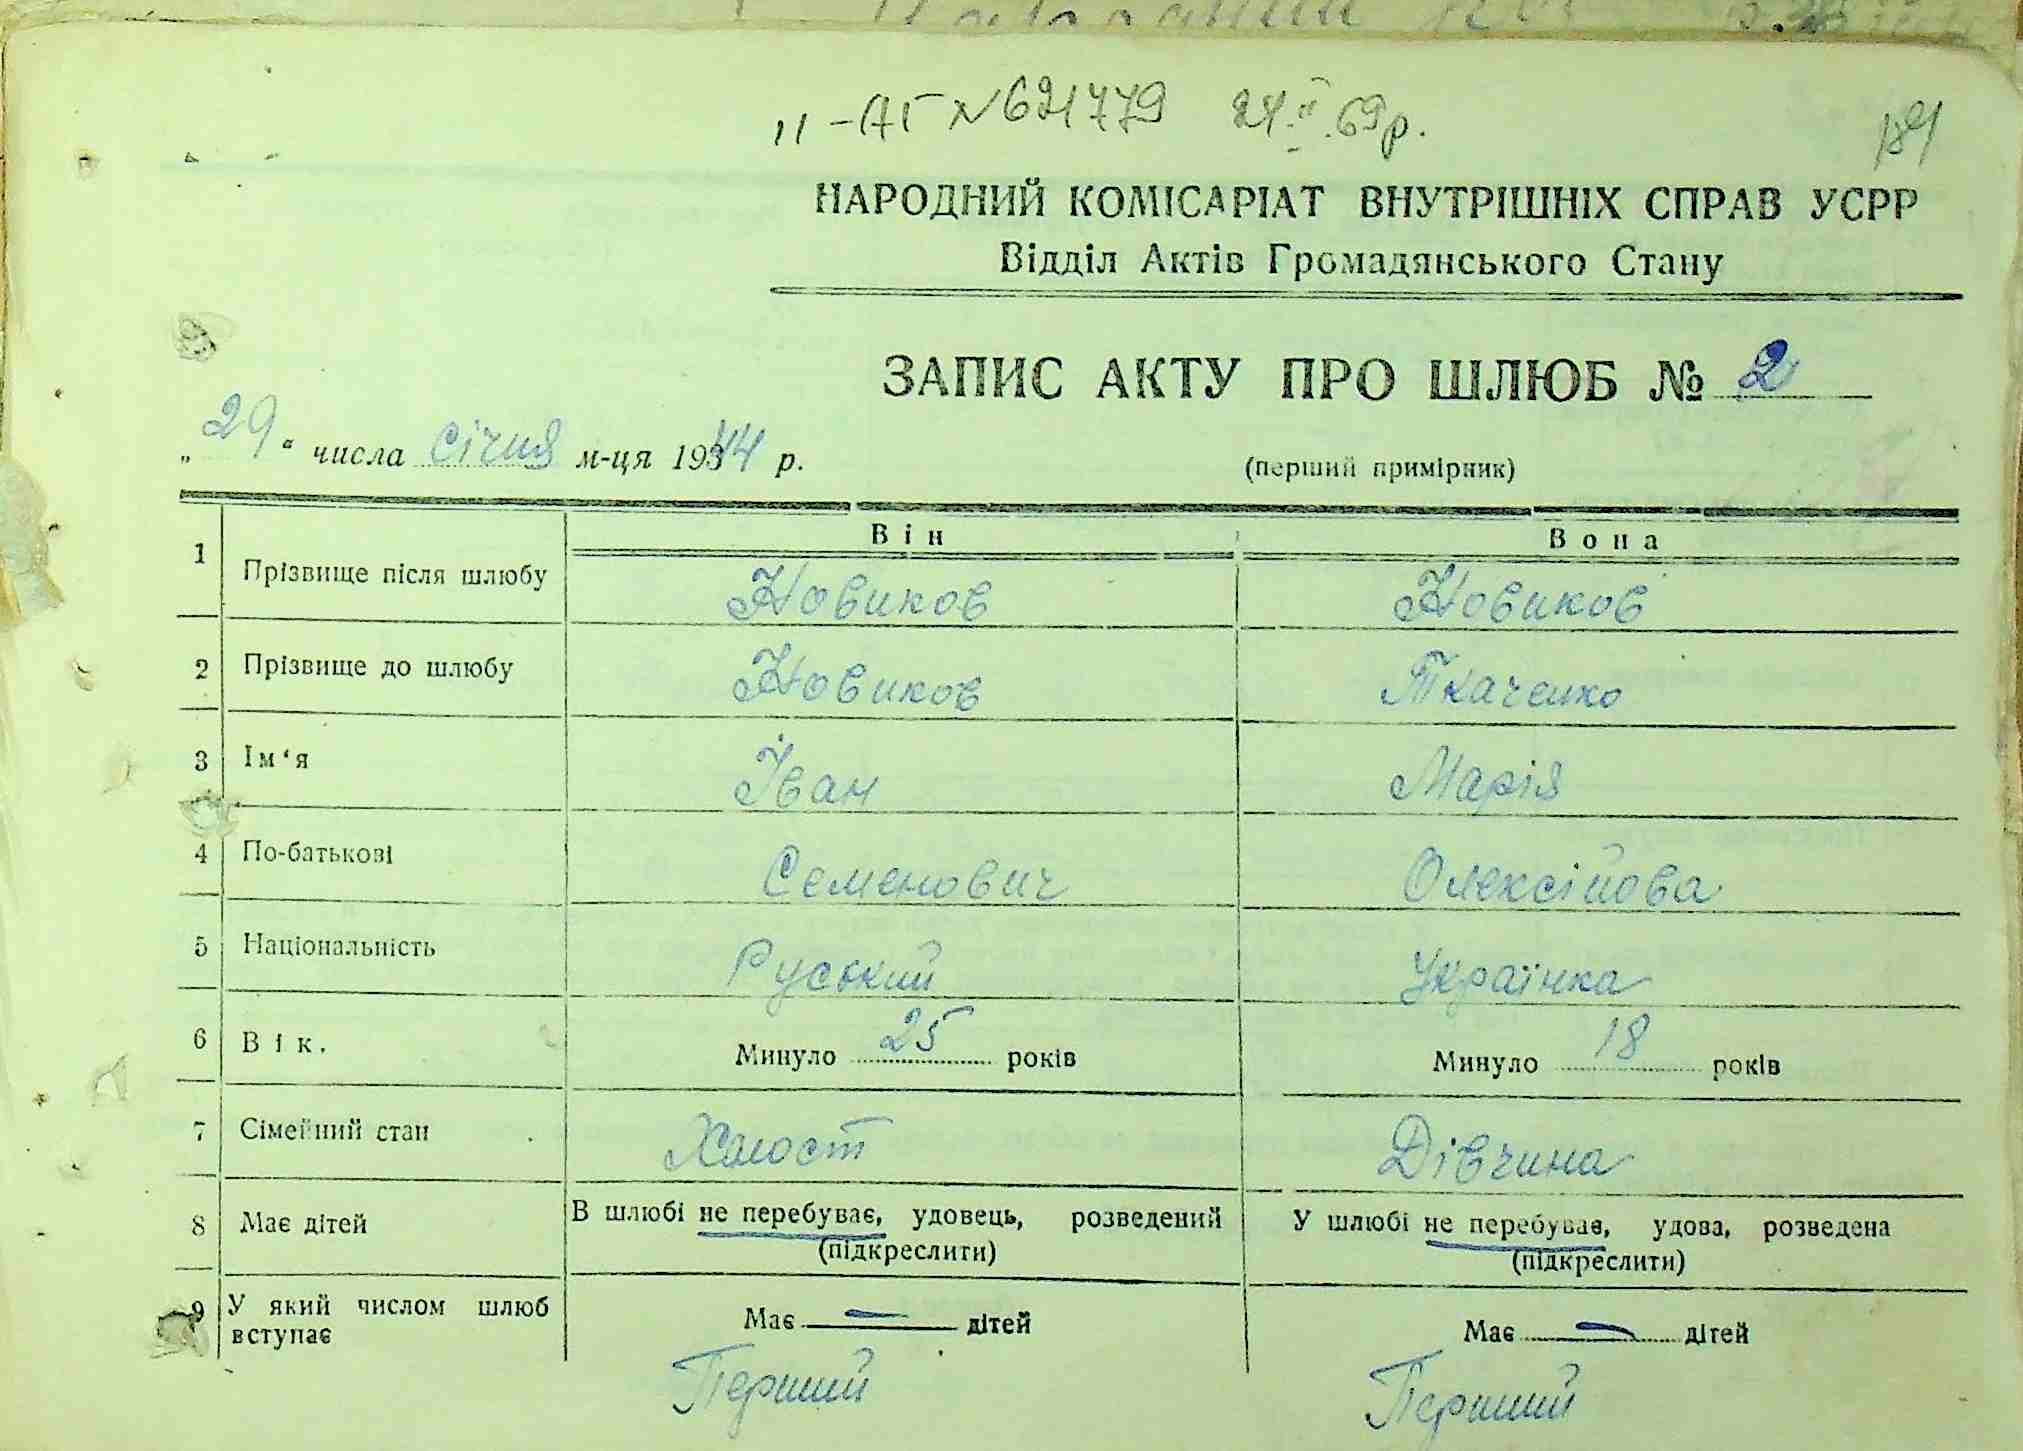 II-АГ №621779 24.II.69р.
НАРОДНИЙ КОМІСАРІАТ ВНУТРІШНІХ СПРАВ УСРР
Відділ Актів Громадянського Стану
ЗАПИС АКТУ ПРО ШЛЮБ № 2
„29“ числа січня м-ця 1944 р.
(перший примірник)
Він Вона
1 Прізвище після шлюбу Новиков Новиков
2 Прізвище до шлюбу Новиков Ткаченко
3 Ім‘я Іван Марія
4 По-батькові Семенович Олексійова
5 Національність Руський Українка
6 Вік. Минуло 25 років Минуло 18 років
7 Сімейний стан Холост Дівчина
8 Має дітей В шлюбі не перебуває, удовець, розведений У шлюбі не перебуває, удова, розведена
(підкреслити) (підкреслити)
9 У який числом шлюб вступає Має — дітей Має — дітей
Перший Перший